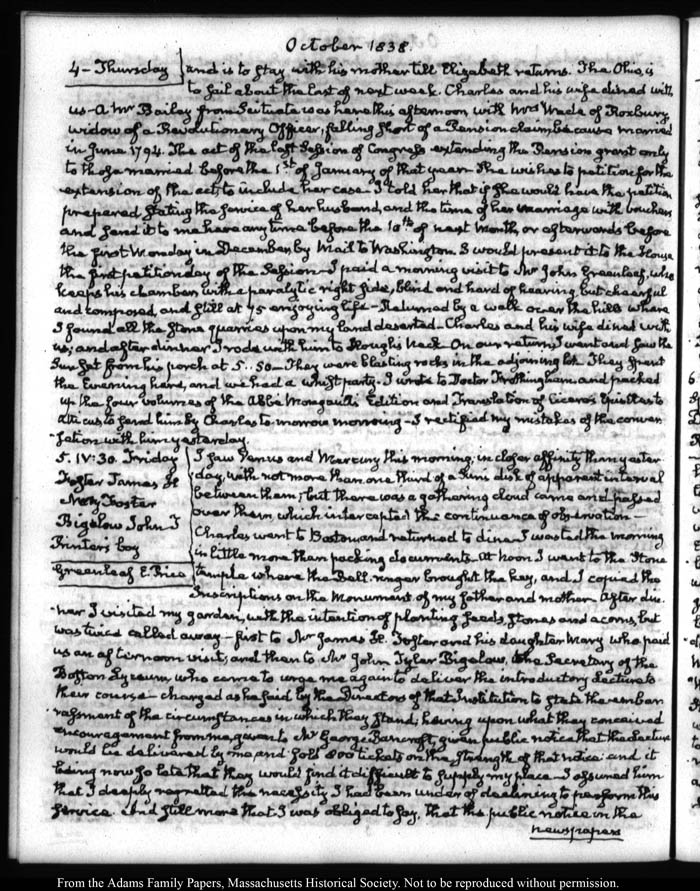 October 1838.
4 - Thursday and is to stay with his mother till Elizabeth returns. The Ohio, is
to sail about the last of next week. Charles and his wife dined with
us - A Mr Bailey from Scituate was here this afternoon with Mrs Wade of Roxbury,
widow of a Revolutionary Officer, falling short of a Pension claim because married
in June 1794. The act of the last Session of Congress extending the Pension grant only
to those married before the 1st of January of that year. She wishes to petition for the
extension of the act, to include her case. I told her that if she would have the petition
prepared stating the service of her husband, and the time of her marriage with vouchers
and send it to me here any time before the 10th of next Month, or afterwards before
the first Monday in December, by Mail to Washington I would present it to the House
the first petition day of the Session - I paid a morning visit to Mr John Greenleaf, who
keeps his chamber, with a paralytic right side, blind and hard of hearing, but cheerful
and composed, and still at 75 enjoying life - Returned by a walk over the hills where
I found all the Stone quarries upon my land deserted - Charles and his wife dined with
us; and after dinner I rode with him to Hough's Neck. On our return I went and saw the
Sun set from his porch at 5..50 - They were blasting rocks in the adjoining lot. They spent
the Evening here, and we had a whist party. I wrote to Doctor Frothingham and packed
up the four volumes of the Abbé Mongault's Edition and Translation of Cicero's Epistles to
Atticus to send him by Charles to-morrow morning - I rectified my mistakes of the conver-
sation with him yesterday.
5. IV:30. Friday I saw Venus and Mercury this morning, in closer affinity than yester-
Foster James H day, with not more than one third of a Sun's disk of apparent interval
Mary Foster between them; but there was a gathering cloud came and passed
Bigelow John T over them, which intercepted the continuance of observation -
Printer's boy Charles went to Boston and returned to dine. I wasted the morning
in little more than packing documents. At Noon I went to the Stone
Greenleaf E. Price temple where the Bell ringer brought the key, and I copied the
Inscriptions on the Monument of my father and mother. After din-
ner I visited my garden, with the intention of planting seeds, stones and acorns, but
was twice called away - first to Mr James H. Foster and his daughter Mary who paid
us an afternoon visit, and then to Mr John Tyler Bigelow, the Secretary of the
Boston Lyceum who came to urge me again to deliver the introductory Lecture to
their course - charged as he said by the Directors of that Institution to state the embar-
rassment of the circumstances in which they stand; having upon what they conceived
encouragement from me, given to Mr George Bancroft, given public notice that the Lecture
would be delivered by me, and sold 800 tickets on the strength of that notice and it
being now so late that they would find it difficult to supply my place - I assured him
that I deeply regretted the necessity I had been under of declining to perform this
service. And still more that I was obliged to say, that the public notice in the
newspapers
From the Adams Family Papers, Massachusetts Historical Society. Not to be reproduced without permission.